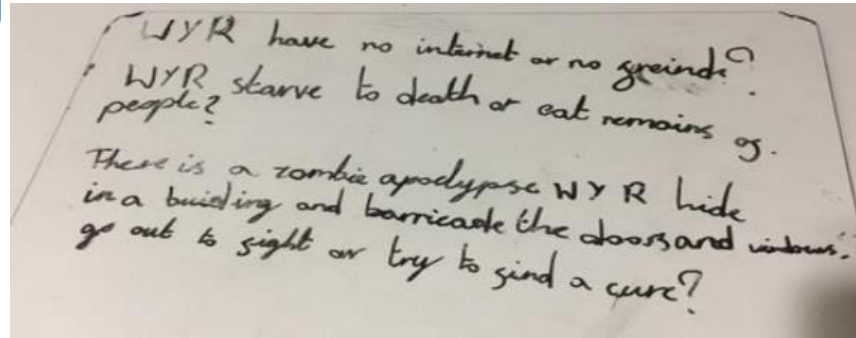 WYR have no internet or no freinds?
WYR starve to death or eat remains of.
people?
There is a zombie apoclypse WYR hide
in a buiding and barricade the doors and windows,
go out to fight or try to find a cure?